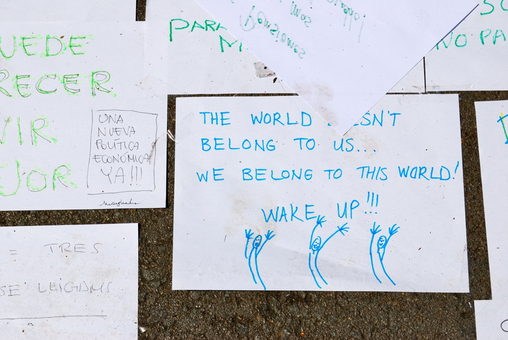 UEDE
RECER
VIR
JOR
PARA
M
NO PA
UNA
NUEVA
POLÍTICA
ECONÓMICA
YA!!!
THE WORLD SN'T
BELONG TO US...
WE BELONG TO THIS WORLD!
WAKE UP!!!
= TRES
SE LEIGAMS